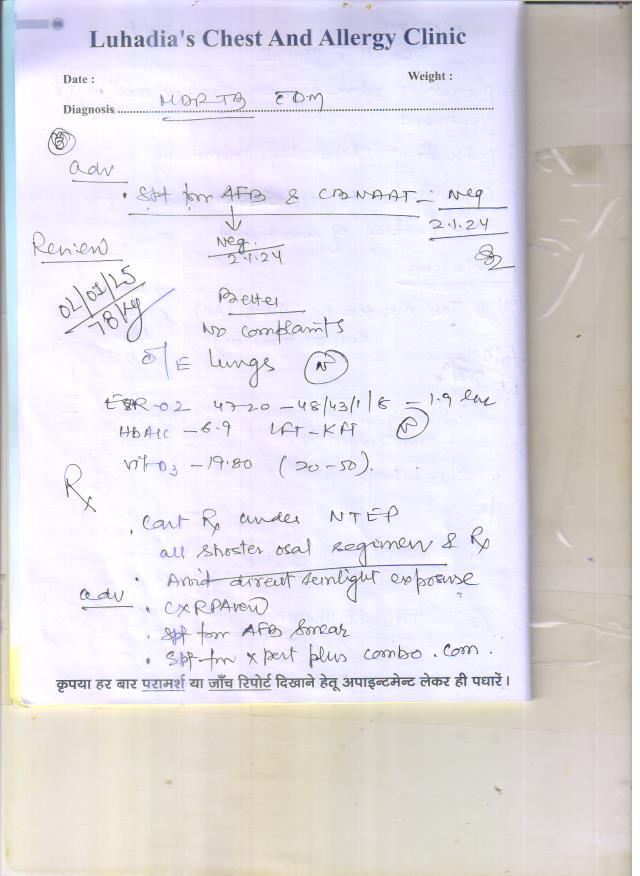 Luhadia's Chest And Allergy Clinic
Date : Weight :
Diagnosis MDRTB ĒDM
6
adv
• Spt for AFB & CBNAAT - Neg
2.1.24
Neg.
2.1.24
Review
02/01/25
78 kg
Better
No complaints
O/E Lungs N
ESR-02 4720 - 48/43/1/8 - 1.9 lac
HbA1C - 6.9 LFT - KFT N
vit D3 - 19.80 (20-50).
Rx
. Cont Rx under NTEP
all shorter oral regimen & Rx
• Avoid direct sunlight exposure
adv
• CXR PA view
• Spt for AFB Smear
• Spt for Xpert plus combo .com.
कृपया हर बार परामर्श या जाँच रिपोर्ट दिखाने हेतू अपाइन्टमेन्ट लेकर ही पधारें।